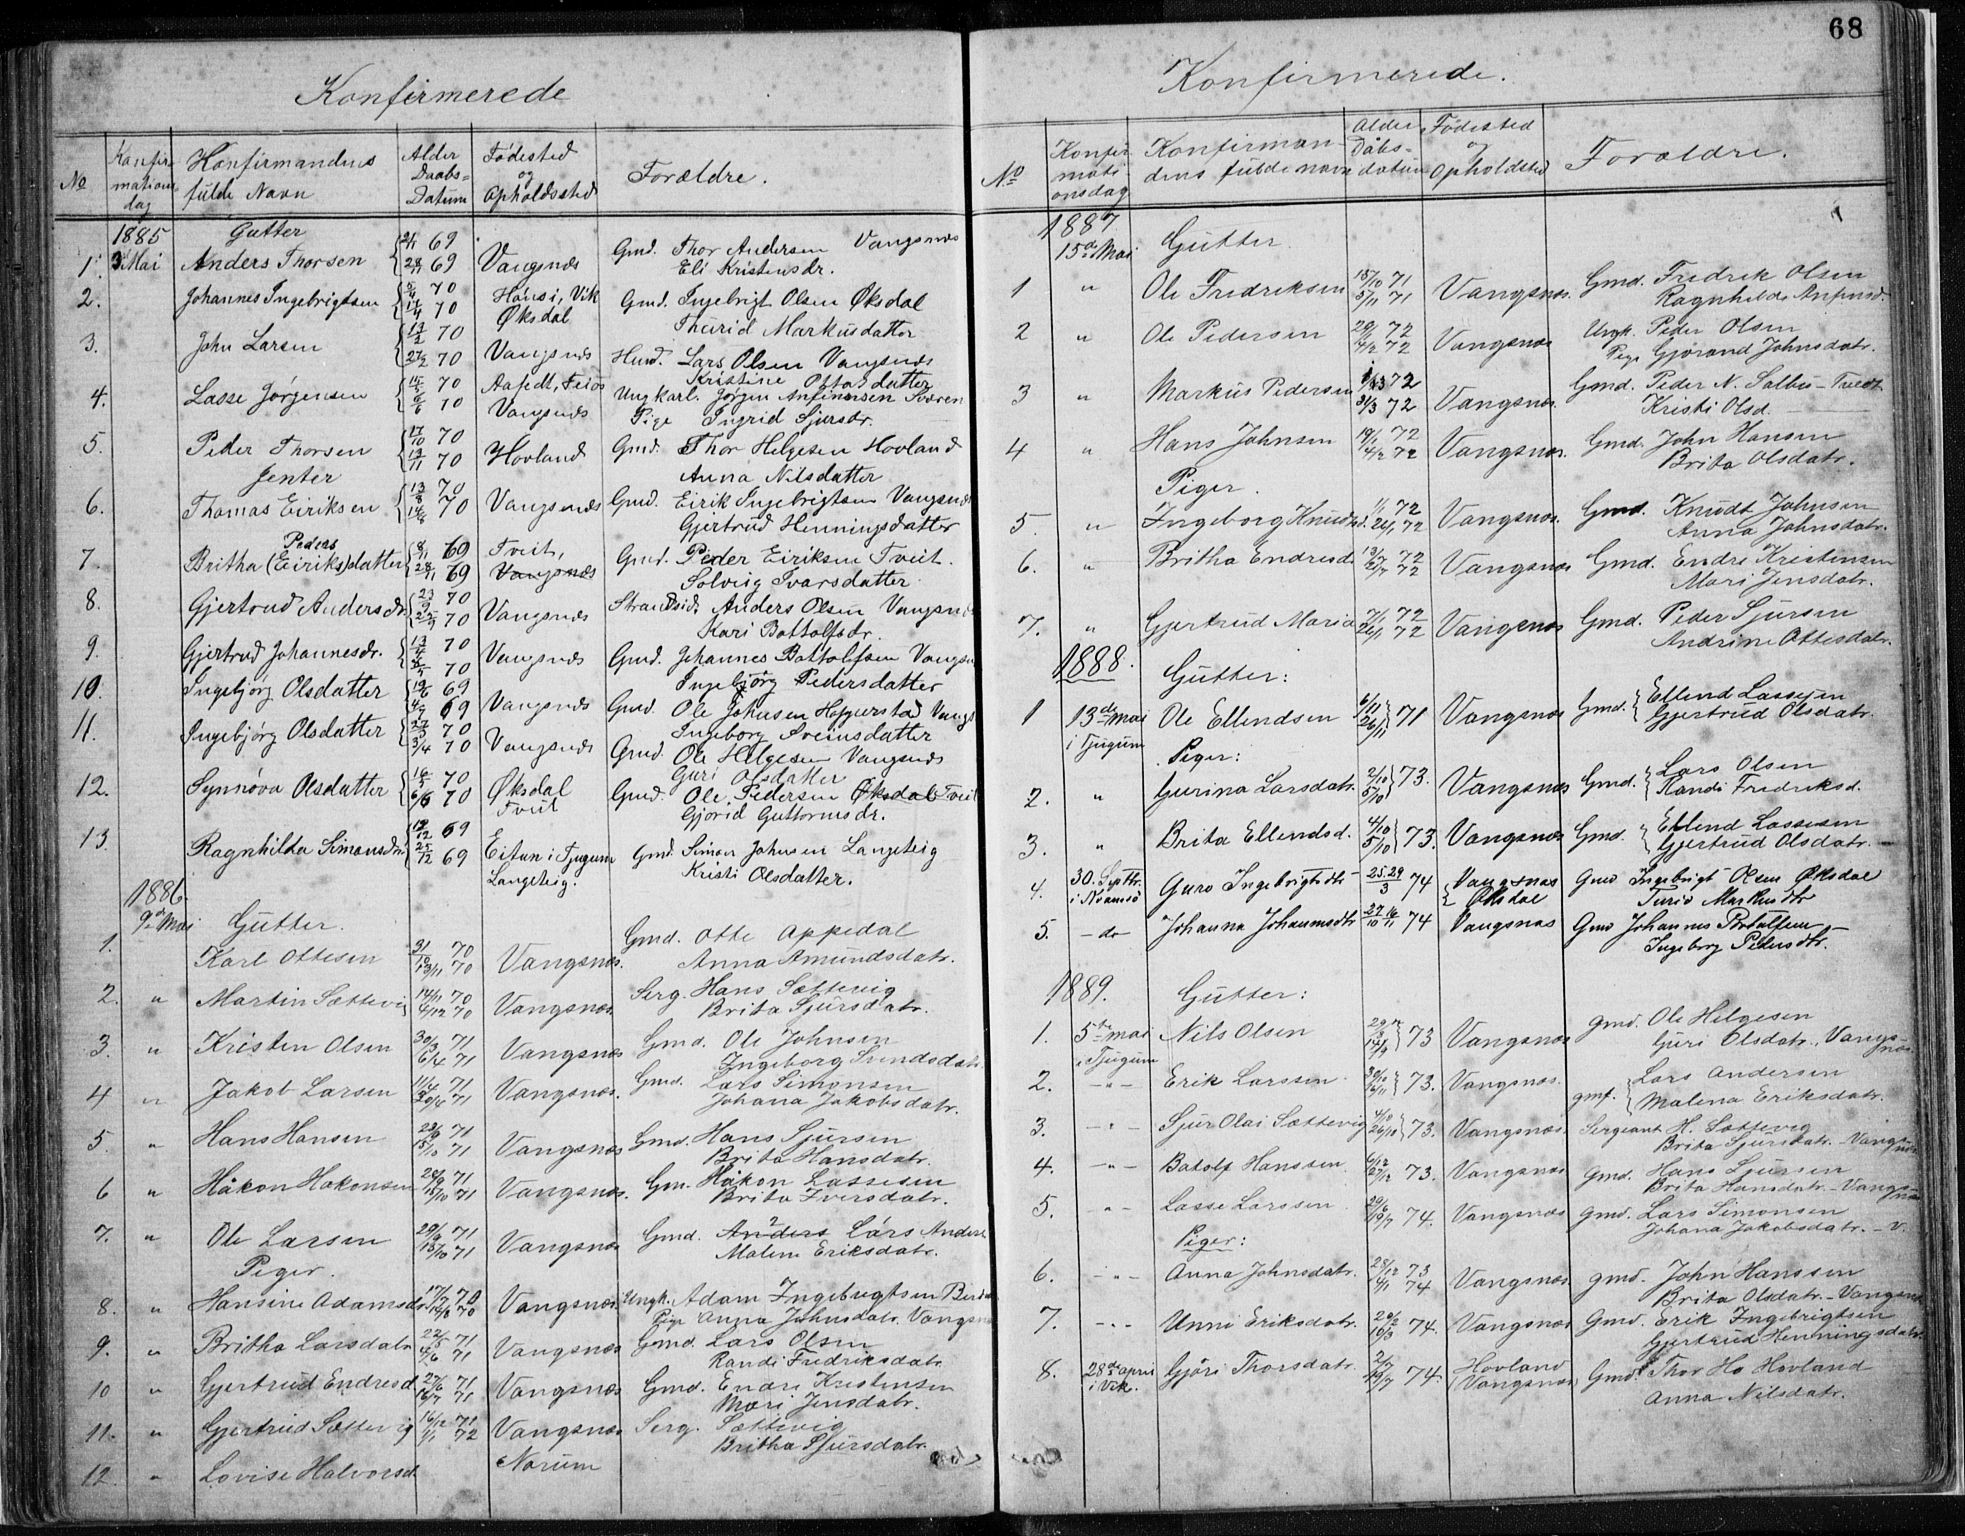 68
Konfirmerede
No Konfirmationsdag Konfirmandens fulde Navn Alder Daabs-Datum Fødested og Opholdssted Forældre.
1885 Gutter
1. 3 Mai Anders Thorsen 2/11 69 28/11 69 Vangsnæs Gmd. Thor Andersen Vangsnæs
Eli Kristensdr.
2. Johannes Ingebrigtsen 70 17/4 70 Hønsi, Vik Øksdal Gmd. Ingebrigt Olsen Øksdal
Thurid Markusdatter
3. John Larsen 13/2 70 27/2 70 Vangsnæs Husd. Lars Olsen Vangsnæs
Kristine Ottosdatter
4. Lasse Jørgensen 15/5 70 6/6 70 Aafedt, Feios Vangsnæs Ungkarl. Jørgen Anfinnsen Sværen
Pige Ingrid Sjursdr.
5. Peder Thorsen 17/10 70 13/11 70 Hovland Gmd. Thor Helgesen Hovland
Anna Nilsdatter
Jenter
6. Thomas Eiriksen 13/8 70 14/8 70 Vangsnæs Gmd. Eirik Ingebrigtsen Vangsnæs
Gjertrud Henningsdatter
Peders
7 Britha (Eiriks)datter 8/11 69 28/11 69 Tveit, Vangsnæs Gmd. Peder Eiriksen Tveit.
Solveig Ivarsdatter
8. Gjertrud Andersdr. 23/9 70 25/9 70 Vangsnæs Strandsid. Anders Olsen Vangsnæs
Kari Bottolfsdr.
9. Gjertrud Johannesdr. 70 70 Vangsnæs Gmd. Johannes Bottolfsen Vangsn
Ingebjørg Pedersdatter
10. Ingebjørg Olsdatter 19/6 69 4/7 69 Vangsnæs Gmd. Ole Johnsen Hopperstad Vangs
Ingeborg Sveinsdatter
11. Ingebjørg Olsdatter 27/3 70 3/4 70 Vangsnæs Gmd. Ole Helgesen Vangsnæs
Guri Olsdatter
12. Synnøva Olsdatter 16/5 70 6/6 70 Øksdal Tveit Gmd. Ole Pedersen Øksdal Tveit
Gjørid Guttormsdr.
13 Ragnhilda Simonsdr. 12/12 69 25/12 69 Eitun i Tjugum Langeteig. Gmd. Simon Johnsen Langeteig
Kristi Olsdatter.
1886.
9de Mai Gutter.
1. Karl Ottesen 31/10 70 13/11 70 Vangsnæs. Gmd. Otte Appedal
Anna Amundsdatr.
2. " Martin Sættevig 14/11 70 4/12 70 Vangsnæs. Serg. Hans Sættevig
Brita Sjursdatr.
3. " Kristen Olsen 30/3 71 6/4 71 Vangsnæs Gmd. Ole Johnsen
Ingeborg Svendsdatr.
4 " Jakob Larsen 11/4 71 30/4 71 Vangsnæs. Gmd. Lars Simonsen
Johana Jakobsdatr.
5 " Hans Hansen 23/9 71 15/10 71 Vangsnæs Gmd. Hans Sjursen
Brita Hansdatr.
6 " Håkon Hakonsen 20/9 71 15/10 71 Vangsnæs. Gm. Håkon Lassesen
Brita Iversdatr.
7. " Ole Larsen 29/9 71 15/10 71 Vangsnæs Gmd. Anders Lars Anders
Malene Eriksdatr.
Piger.
8. " Hansine Adamsdr. 17/7 70 14/8 70 Vangsnæs. Ungk. Adam Ingebrigtsen
Pige Anna Johnsdatr. Vangsn
9. " Britha Larsdatr. 22/5 71 4/6 71 Vangsnæs Gmd. Lars Olsen
Randi Fredriksdatr.
10 " Gjertrud Endresd. 27/6 71 16/7 71 Vangsnæs Gmd. Endre Kristensen
Mari Jensdatr.
11. " Gjertrud Sættevig 16/12 71 1/1 72 Vangsnæs Serg. Sættevig
Britha Sjursdatr.
12. " Lovise Halvorsd. Norum
Konfirmerede.
No Konfirmationsdag Konfirmandens fulde navn Alder Dåbsdatum Fødested og Opholdsted Forældre.
1887
15de Mai Gutter.
1 " Ole Fredriksen 15/10 71 5/11 71 Vangsnæs. Gmd. Fredrik Olsen
Ragnhilde Anfinsd.
2 " Ole Pedersen 20/1 72 4/2 72 Vangsnæs Ungk. Peder Olsen
Pige Gjørand Johnsdatr.
3 " Markus Pedersen 72 31/3 72 Vangsnæs. Gmd. Peder N. Salbu - Tvedt
Kristi Olsd.
4 " Hans Johnsen 19/1 72 4/2 72 Vangsnæs. Gmd. John Hansen
Brita Olsdatr.
Piger.
5. " Ingeborg Knudsd. 1/1 72 26/1 72 Vangsnæs. Gmd. Knudt Johnsen
Anna Johnsdatr.
6. " Britha Endresd. 13/7 72 21/7 72 Vangsnæs Gmd. Endre Kristensen
Mari Jensdatr.
7. " Gjertrud Maria 7/1 72 26/1 72 Vangsnæs Gmd. Peder Sjursen
Andrine Ottesdatr.
1888. Gutter:
1 13de Mai i Tjugum Ole Ellendsen 6/11 26/11 71 Vangsnæs Gmd. Ellend Lassesen
Gjertrud Olsdatr.
Piger:
2. " Gurina Larsdatr. 2/10 5/10 73. Vangsnæs Gmd. Lars Olsen
Randi Fredriksd.
3. " Brita Ellendsd. 4/10 5/10 73. Vangsnæs Gmd. Ellend Lassesen
Gjertrud Olsdatr.
4. 30. Septbr. i Kvamsø Guro Ingebrigtsdtr 25.29/3 74 Vangsnæs Øksdal Gmd Ingebrigt Olsen Øksdal
Turid Markusdtr
5. - do - Johanna Johannesdtr 27/10 16/11 74 Vangsnæs Gmd Johannes Botolfsen
Ingeborg Pedersdtr.
1889. Gutter:
1. 5te mai i Tjugum Nils Olsen 73 Vangsnæs gmd. Ole Helgesen
Guri Olsdatr., Vangsnæs
2. - " - Erik Larsen 30/10 16/11 73. Vangsnæs. gmd. Lars Andersen
Malena Eriksdatr.
3. - " - Sjur Olai Sættevig 4/10 26/10 73. Vangsnæs. Sergeant H. Sættevig
Brita Sjursdatr. - Vangsnæs
4. - " - Batolf Hanssen 6/12 27/12 73. Vangsnæs gmd. Hans Sjursen
Brita Hansdatr. - Vangsnæs
5. - " - Lasse Larssen 29/6 19/7 74. Vangsnæs gmd. Lars Simonsen
Johana Jakobsdatr. - V.
Piger:
6. - " - Anna Johnsdatr. 28/12 73 14/1 74 Vangsnæs gmd. John Hanssen
Brita Olsdatr. - Vangsnæs
7. - " - Unni Eriksdatr. 20/2 10/3 74. Vangsnæs Gmd. Erik Ingebrigtsen
Gjertrud Henningsdatr.
8. 28de april i Vik. Gjøri Thorsdatr. 2/7 19/7 74 Hovland (Vangsnæs) Gmd. Thor He Hovland
Anna Nilsdatr.